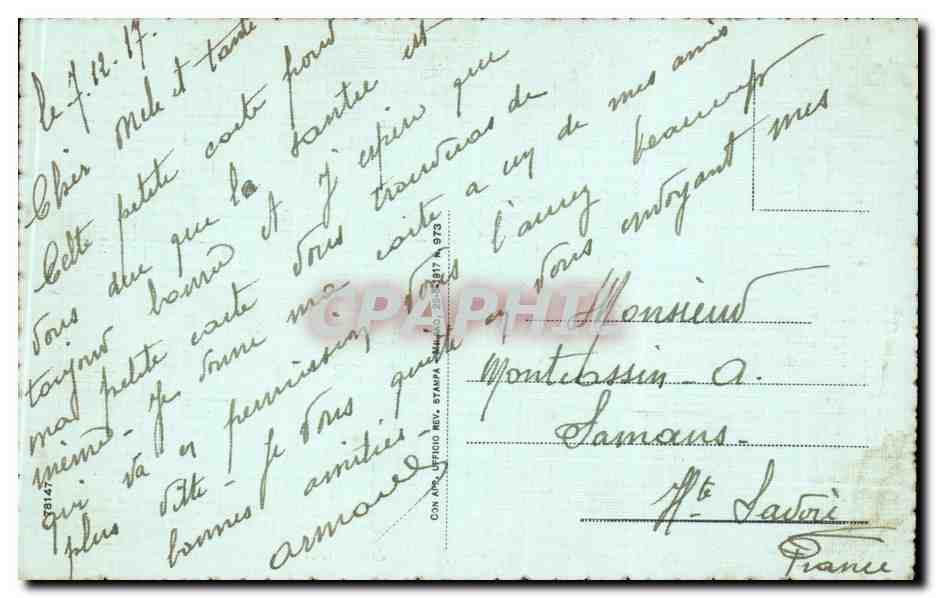 le 7.12.17.
Cher Mele et tante
Cette petite carte pour
vous dire que la santée est
toujour bonne et J'espère que
ma petite carte vous trouveras de
même - Je donne ma carte a un de mes amis
qui va en permission vous l'aurez beaucoup
plus vitte - Je vous quitte en vous envoyant mes
bonnes amitiés -
Armand
78147
CON APP. UFFICIO REV. STAMPA - MILANO, 25-5-1917 N. 973
GRAPHTI
Monsieur
Montcassin - A.
Samans -
Hte Savoie
France